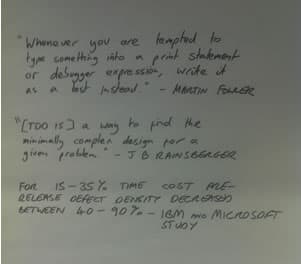 "Whenever you are tempted to
type something into a print statement
or debugger expression, write it
as a test instead." - MARTIN FOWLER
"[TDD IS] a way to find the
minimally complex design for a
given problem." - J B RAINSBERGER
FOR 15-35% TIME COST PRE-
RELEASE DEFECT DENSITY DECREASED
BETWEEN 40-90% - IBM AND MICROSOFT
STUDY